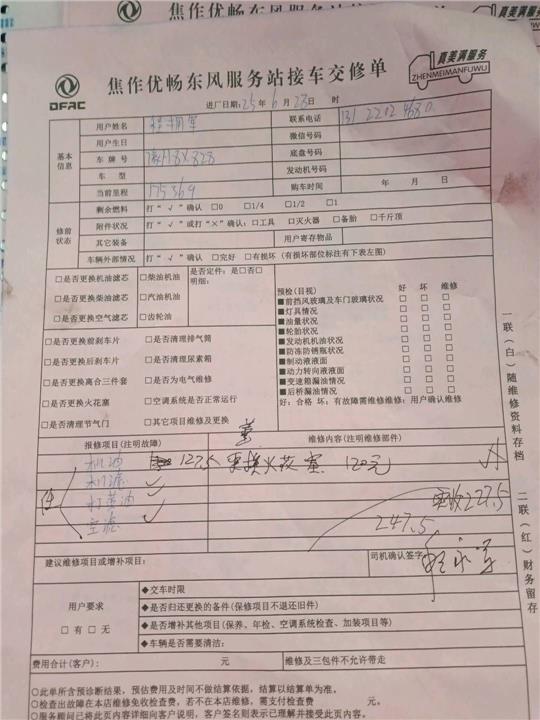 DFAC
焦作优畅东风服务站接车交修单
真美满服务
ZHENMEIMANFUWU
进厂日期:25年6月28日 时
基本信息
用户姓名
联系电话
用户生日
微信号码
车牌号 豫H8X828
底盘号码
车型
发动机号码
当前里程 175369
购车时间 年 月 日
修前状态
剩余燃料 打“√”确认 □0 □1/4 □1/2 □1
附件状况 打“√”或打“×”确认:□工具 □灭火器 □备胎 □千斤顶
其它装备
用户寄存物品
车辆外部情况 打“√”确认 □完好 □有损坏(有损坏部位标注有下表左图)
□是否更换机油滤芯 □柴油机油
□是否更换柴油滤芯 □汽油机油
□是否更换空气滤芯 □齿轮油
是否定件:是□否□
明细:
□是否更换前刹车片 □是否清理排气筒
□是否更换后刹车片 □是否清理尿素箱
□是否更换离合三件套 □是否为电气维修
□是否更换火花塞 □空调系统是否正常运行
□是否清理节气门 □其它项目维修及更换
预检(目视) 好 坏 维修
■前挡风玻璃及车门玻璃状况 □ □ □
■灯具情况 □ □ □
■油量状况 □ □ □
■轮胎状况 □ □ □
■发动机机油状况 □ □ □
■防冻防锈瓶状况 □ □ □
■制动液液面 □ □ □
■动力转向液液面 □ □ □
■变速箱漏油情况 □ □ □
■后桥漏油情况 □ □ □
好:合格 坏:有故障需维修维修:用户确认维修
报修项目(注明故障)
维修内容(注明维修部件)
塞
机油 127.5 更换火花塞 120元
机滤 √
√
空滤 √
实收227.5
247.5
建议维修项目或增补项目:
司机确认签字
用户要求
□有 □无
◆交车时限
◆是否归还更换的备件(保修项目不退还旧件)
◆是否增补其他项目(保养、年检、空调系统检查、加装项目等)
◆车辆是否需要清洁:
费用合计(客户): 元
维修及三包件不允许带走
○此单所含预诊断结果,预估费用及时间不做结算依据,结算以结算单为准。
○检查出故障在本店维修免收检查费,若不在本店维修,需支付检查费 元。
○服务顾问已将此页内容详细向客户说明,客户签名则表示已理解并接受此页内容。
一联(白)随维修资料存档
二联(红)财务留存